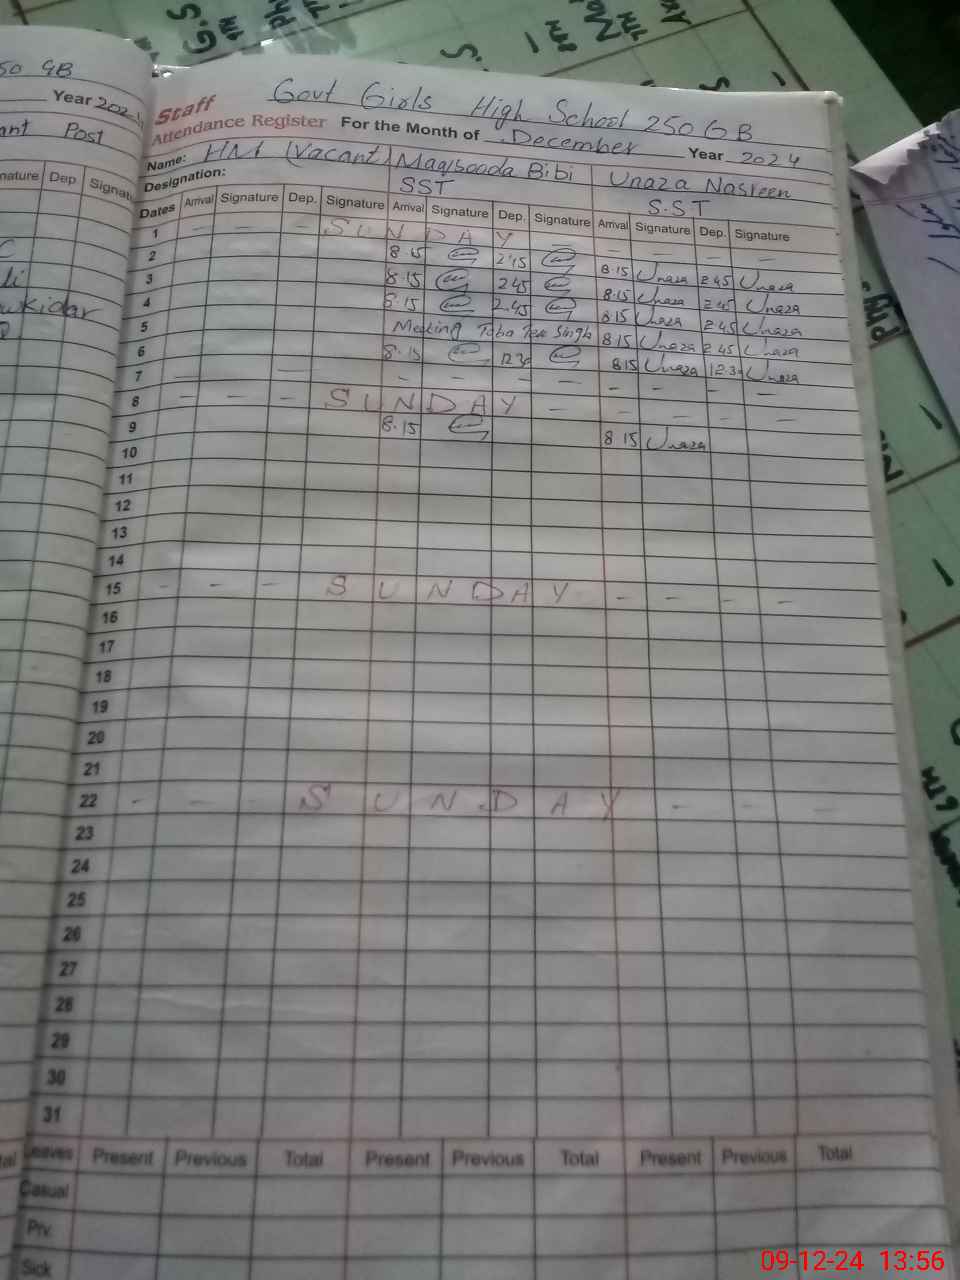 50 GB
Year 202
ant Post
nature Dep Signatu
Govt Girls High School 250 GB
Staff
Attendance Register For the Month of December Year 2024
Name: HM (Vacant) Maqsooda Bibi Unaza Nasreen
Designation: SST S.ST
Dates Arrival Signature Dep. Signature Arrival Signature Dep. Signature Arrival Signature Dep. Signature
1 - - - SUNDAY - - - - -
2 8.15 2.15 8.15 Unaza 2.45 Unaza
3 8.15 2.45 8.15 Unaza 2.45 Unaza
4 8.15 2.45 8.15 Unaza 2.45 Unaza
5 Meeting Toba Tek Singh 8.15 Unaza 2.45 Unaza
6 8.15 12.30 8.15 Unaza 12.3 Unaza
7 - - - - - - - - - -
8 - - - SUNDAY - - - - -
9 8.15 8.15 Unaza
10
11
12
13
14
15 - - - SUNDAY - - - -
16
17
18
19
20
21
22 - - - SUNDAY - - -
23
24
25
26
27
28
29
30
31
Leaves Present Previous Total Present Previous Total Present Previous Total
Casual
Prv.
Sick
09-12-24 13:56